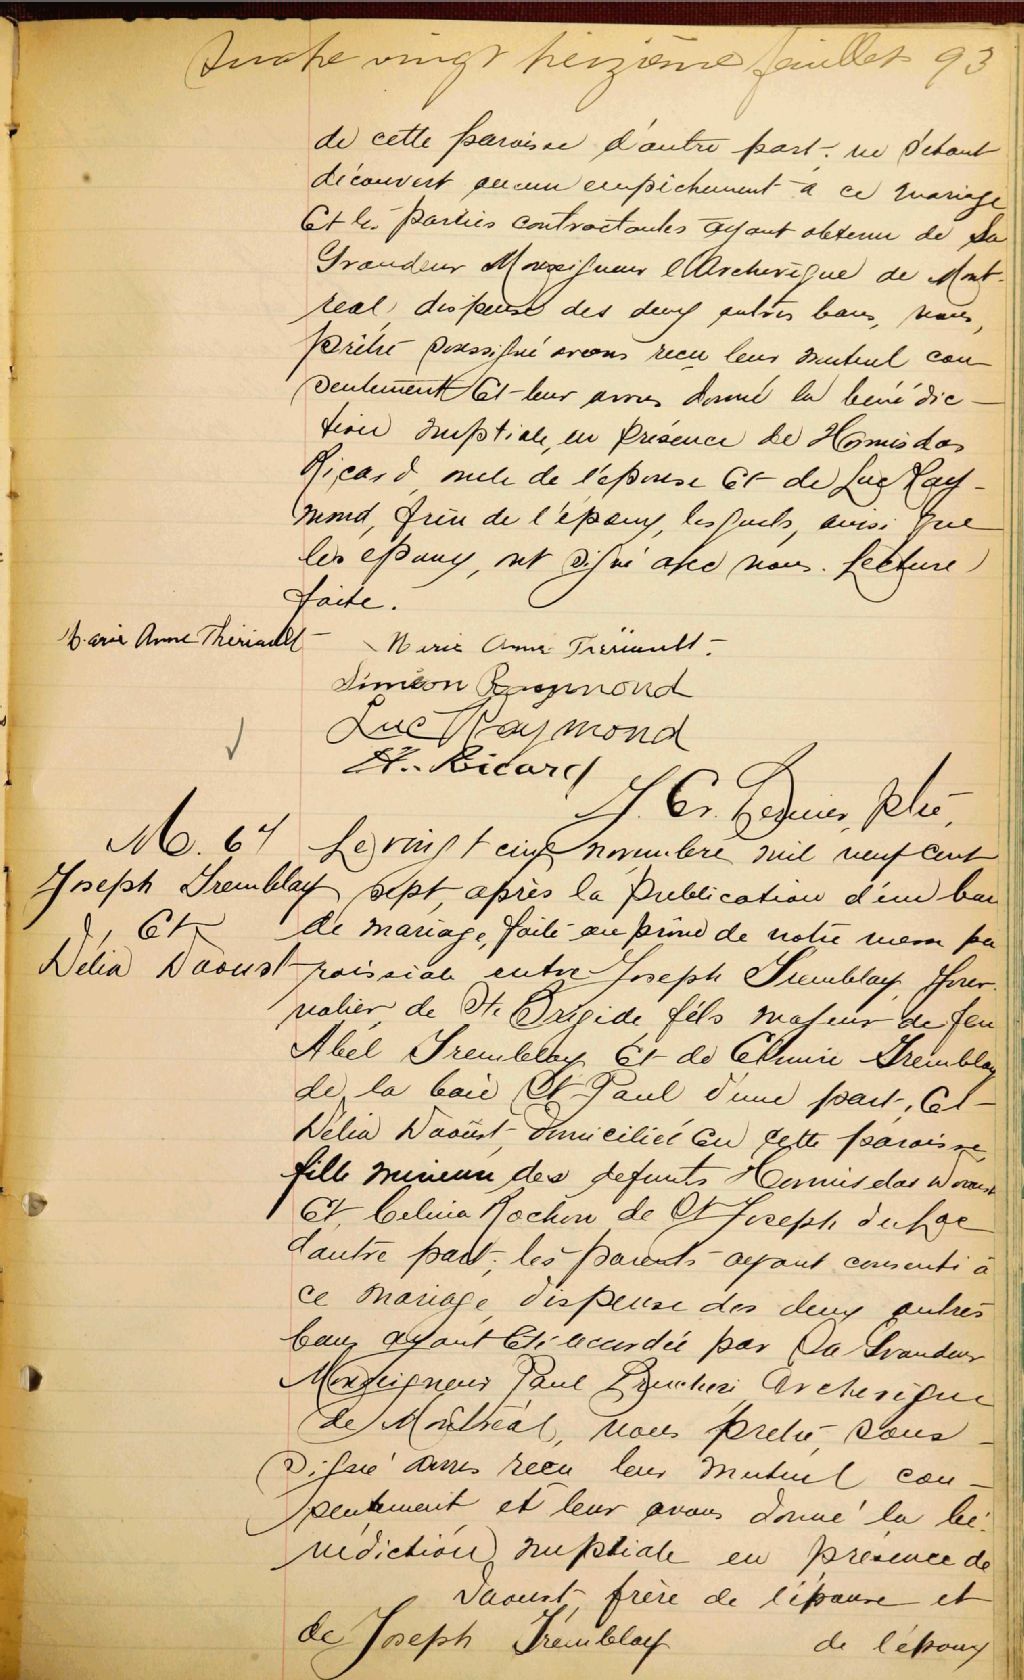 Quatre vingt treizième feuillet 93
de cette paroisse d'autre part; ne s'étant
découvert aucun empêchement à ce mariage
Et les parties contractantes ayant obtenu de Sa
Grandeur Monseigneur l'Archevêque de Mont-
réal, dispense des deux autres bans, nous,
prêtre soussigné avons reçu leur mutuel con-
sentement Et leur avons donné la bénédic-
tion nuptiale, en présence de Hormisdas
Ricard, oncle de l'épouse Et de Luc Ray-
mond, frère de l'époux, lesquels, ainsi que
les époux, ont signé avec nous. Lecture
faite.
Marie Anne Thériault
Marie Anne Theriault.
Siméon Raymond
Luc Raymond
H. Ricard
ptre,
M. 67
Joseph Tremblay
Et
Délia Daoust
Le vingt cinq novembre mil neuf cent
sept, après la publication d'un ban
de mariage, faite au prône de notre messe pa
roissiale entre Joseph Tremblay, jour-
nalier, de Ste Brigide, fils majeur de feu
Abel Tremblay Et de Tremblay
de la baie St Paul d'une part, Et
Délia Daoust domiciliée en cette paroisse,
fille mineure des defunts Hormisdas Daoust
Et Celina Rochon de St Joseph du Lac
d'autre part; les parents ayant consenti à
ce mariage, dispense des deux autres
bans ayant été accordée par Sa Grandeur
Monseigneur Paul Bruchési Archevêque
de Montréal, nous prêtre, sous-
signé avons reçu leur mutuel con-
sentement et leur avons donné la bé-
nédiction nuptiale en présence de
Daoust, frère de l'épouse et
de Joseph Tremblay de l'époux